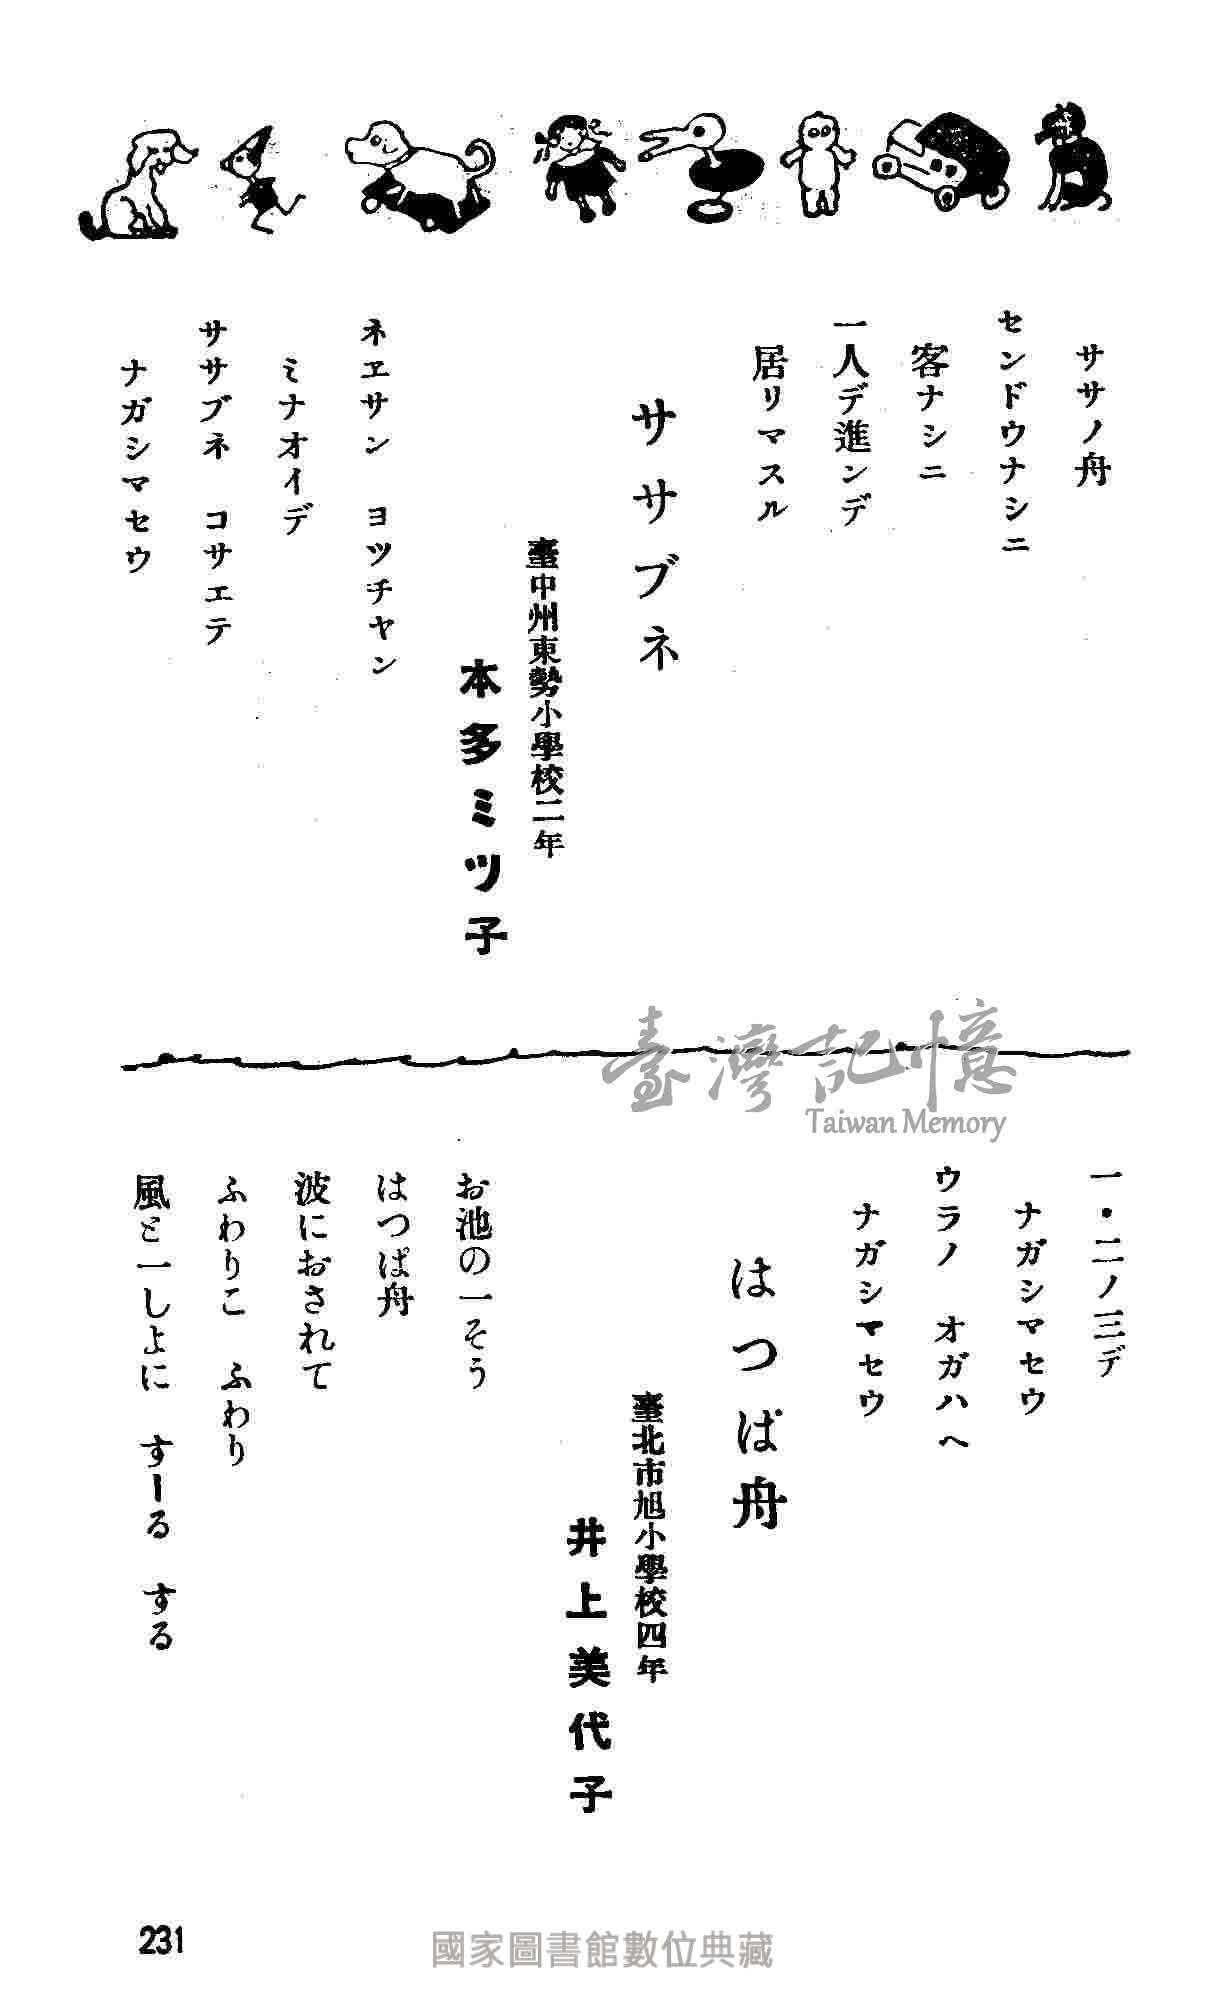 ササノ舟
センドウナシニ
客ナシニ
一人デ進ンデ
居リマスル
ササブネ
臺中州東勢小學校二年
本多ミツ子
ネヱサン　ヨツチヤン
ミナオイデ
ササブネ　コサエテ
ナガシマセウ
一・二ノ三デ
ナガシマセウ
ウラノ　オガハヘ
ナガシマセウ
はつぱ舟
臺北市旭小學校四年
井上美代子
お池の一そう
はつぱ舟
波におされて
ふわりこ　ふわり
風と一しよに　すーる　する
臺灣記憶
Taiwan Memory
231
國家圖書館數位典藏